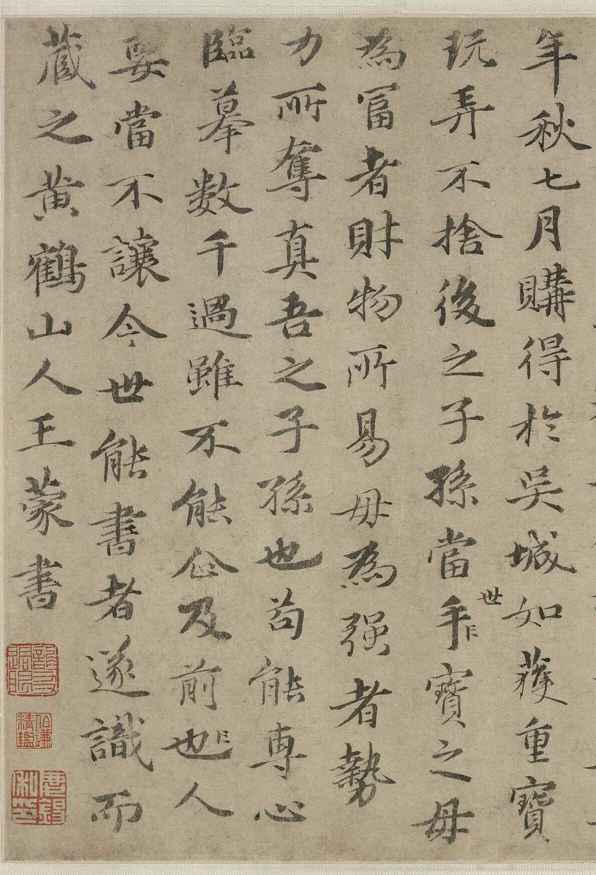 年秋七月購得於吳城如獲重寶
玩弄不捨後之子孫當世手寶之毋
為冨者財物所易毋為强者勢
力所奪真吾之子孫也苟能專心
臨摹数千過雖不能企及前也人
要當不讓今世能書者遂識而
藏之黄鶴山人王蒙書